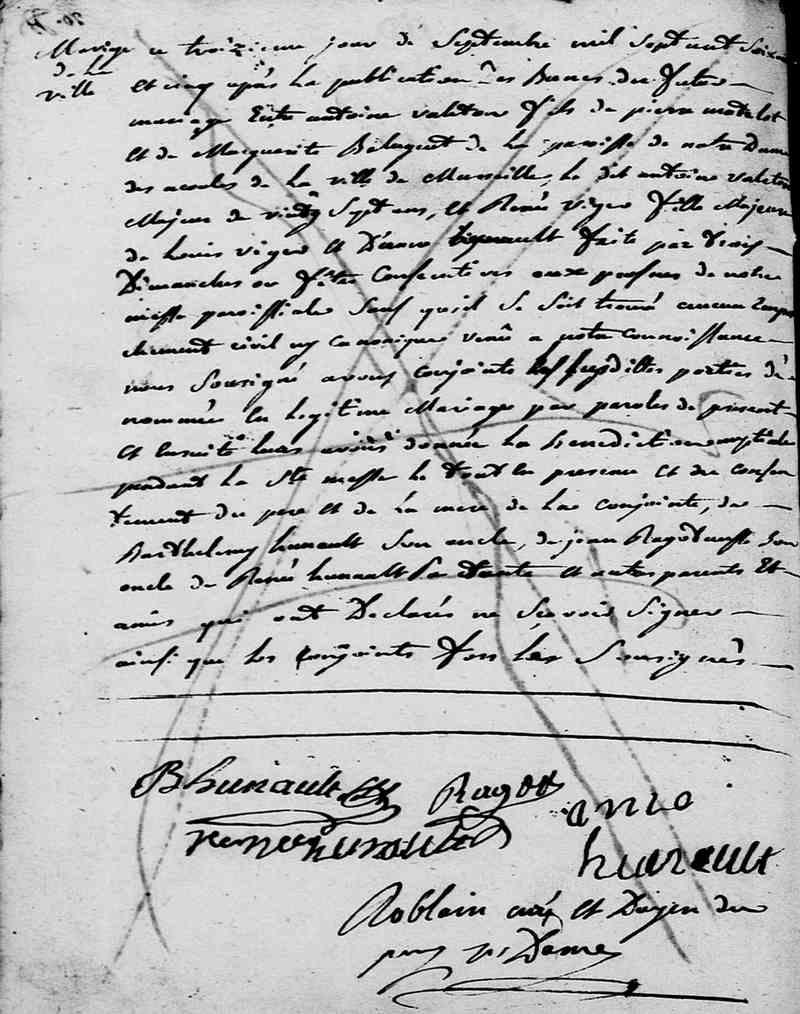 Mariage ce troizieme jour de Septembre mil Sept cent Soix
de la
ville
et cinq après la publication des Bancs du futur
mariage Entre antoine valeton fils de pierre matelot
et de Marguerite de la paroisse de notre Dame
des acoules de la ville de Marseille, le dit antoine valeton
Majeur de vingt Sept ans, et Renée viger fille Majeure
de Louis viger et D'anne hunault faite par trois
Dimanches ou fêtes Consecutives aux prosnes de notre
messe paroissiale Sans qu'il Se Soit trouvé aucun Empe
chement civil ny Canonique venû a notre connoissance
nous Sousigné avons conjoints les susdittes parties dé
nommée En legitime Mariage par paroles de présent
et Ensuite leurs avons donnée la benediction nuptiale
pendant la Ste messe le tout En presence et du consen
tement du pere et de la mere de la conjointe, de
Barthelemy hunault Son oncle, de jean Ragot Son
oncle de Renée hunault Sa tante et autres parents Et
amis qui ont Declarés ne Scavoir Signer
ainsi que les Conjoints fors les Sousignés
B hunault Ragot
anne
renee hunault
hunault
Roblain curé et Doyen du
puy n. Dame